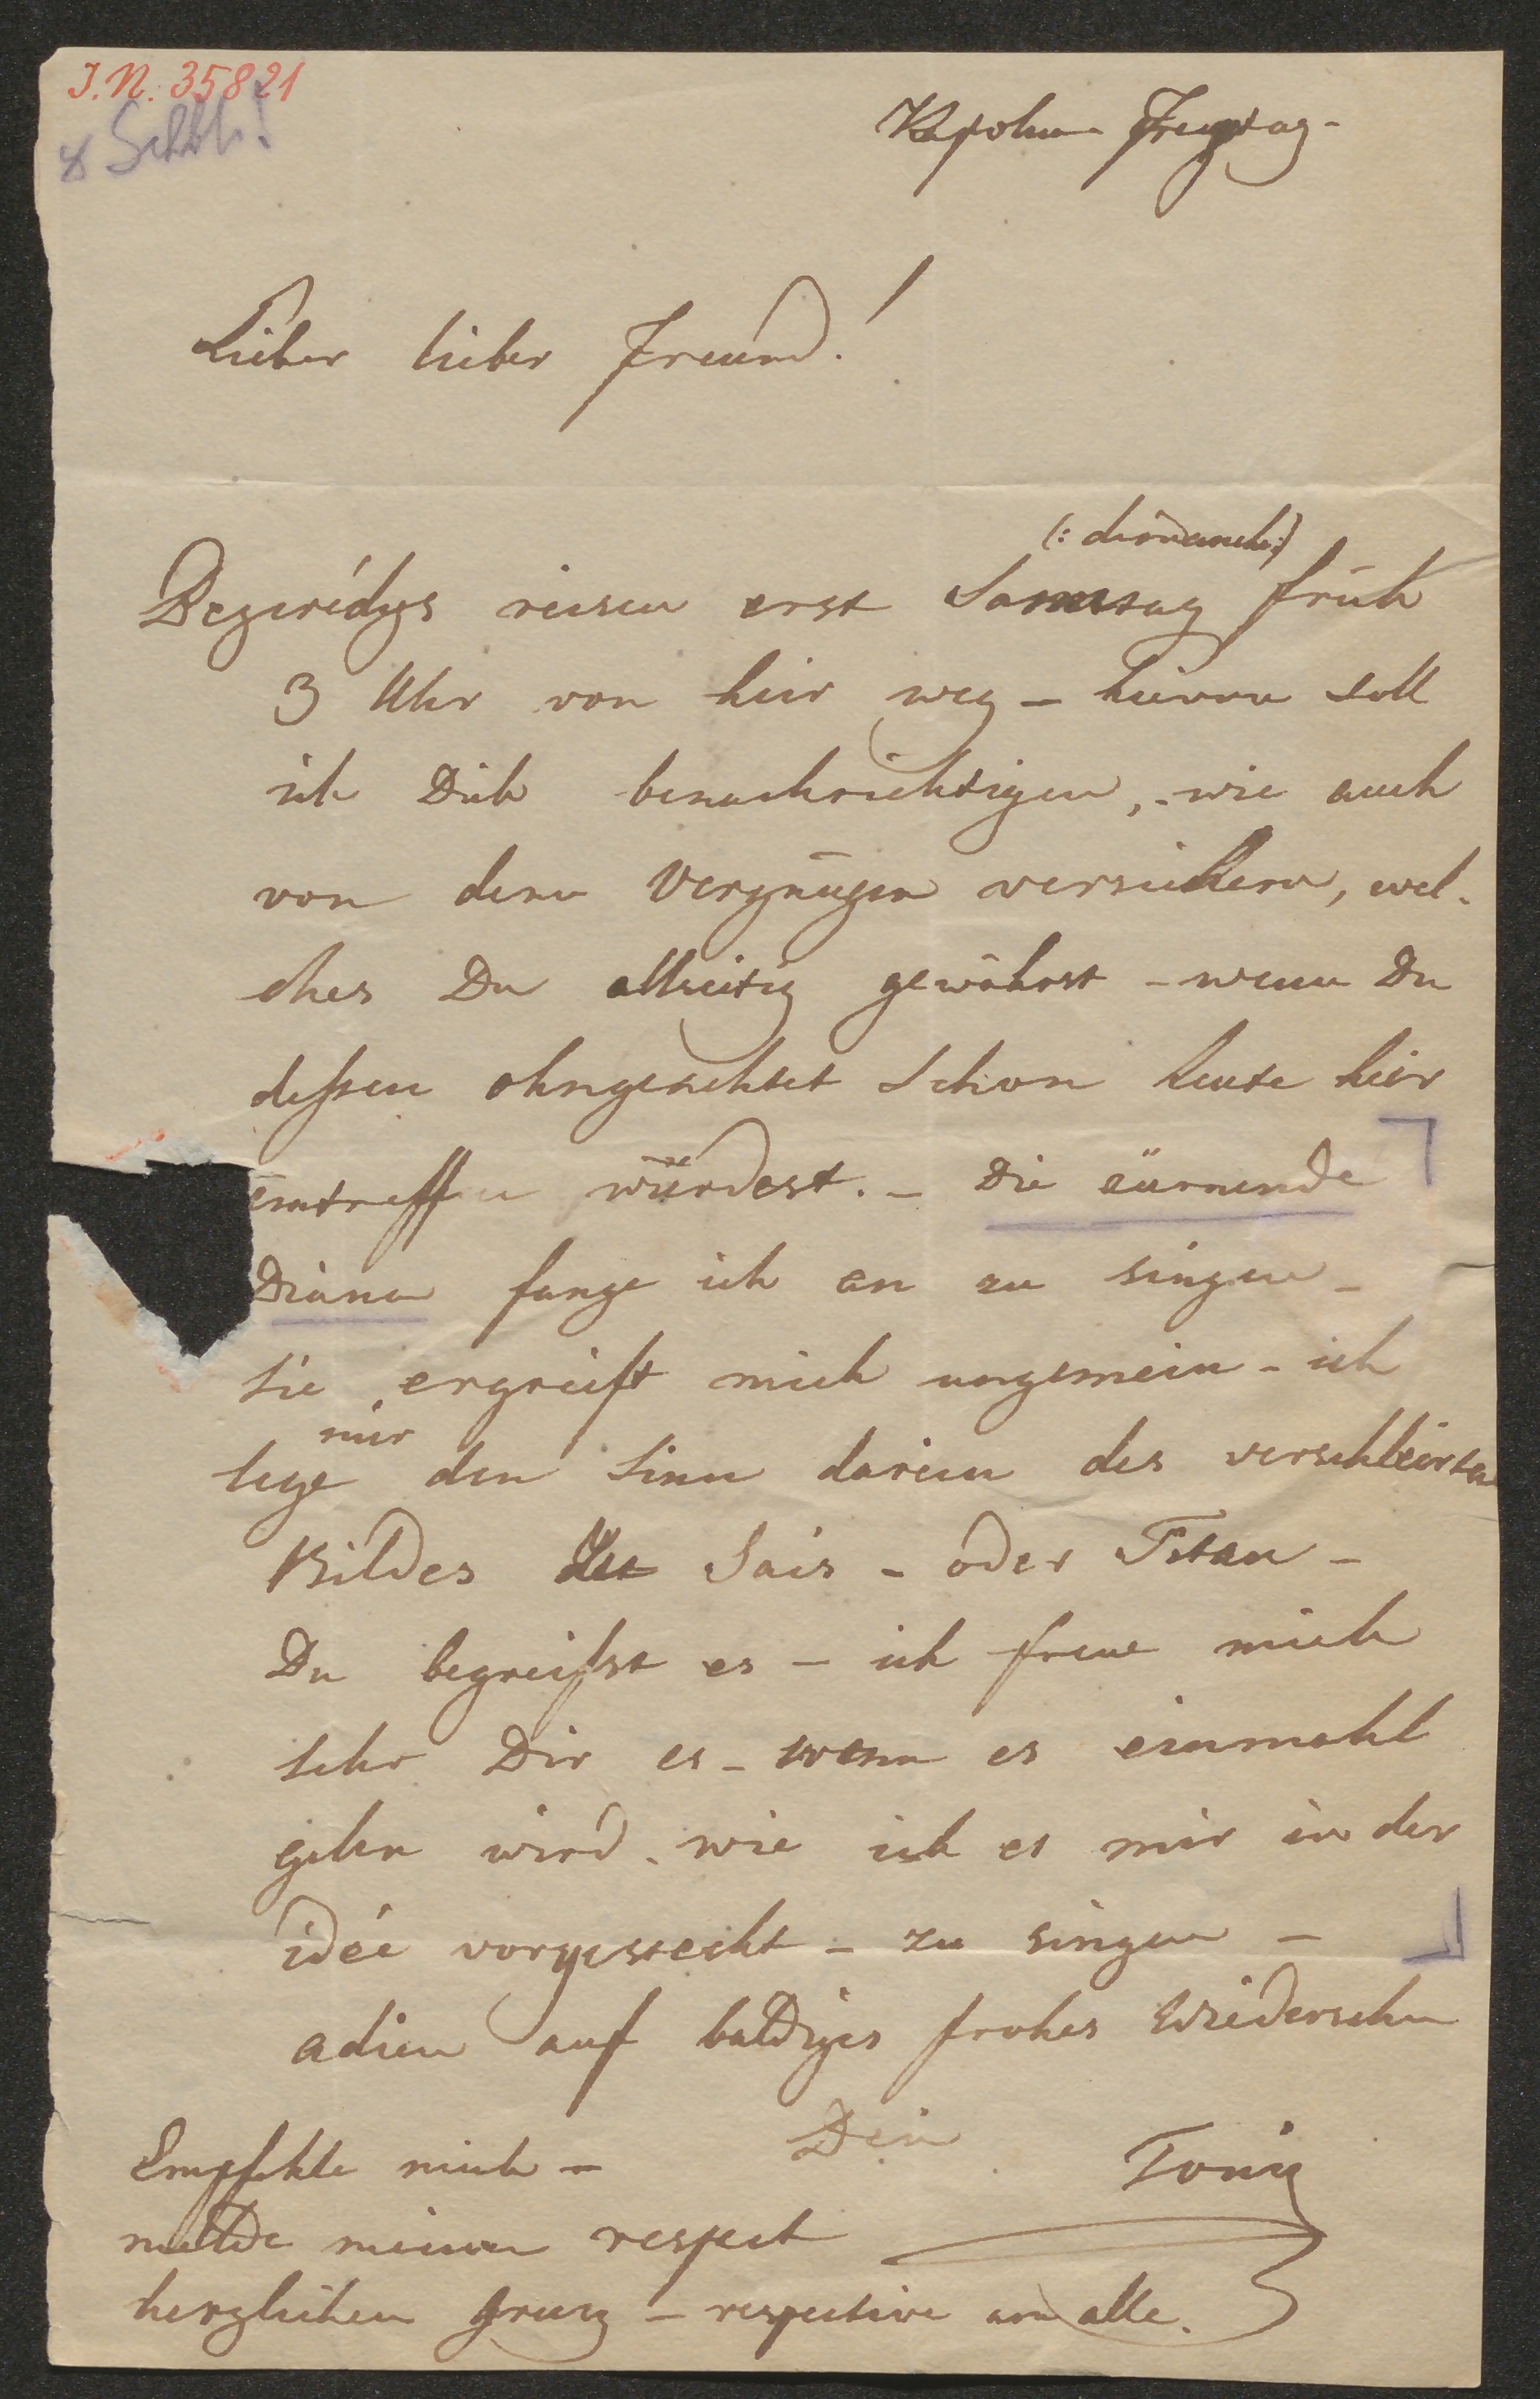 J. N. 35821
Freytag –
Lieber lieber Freund!
(: dimanche :)
Bezerédys reisen erst Samstag früh
3 Uhr von hier weg – hievon soll
ich Dich benachrichtigen, – wie auch
von dem Vergnügen versichern, wel-
ches Du allseitig gewährst – wenn Du
dessen ohngeachtet schon heute hier
eintreffen würdest. – Die zürnende
Diana fange ich an zu singen –
sie ergreift mich ungemein – ich
mir
lege den Sinn darein des verschleierten
Bildes zu Sais – oder Titan –
Du begreifst es – ich freue mich
sehr Dir es – wenn es einmahl
gehen wird – wie ich es mir in der
idée vorgesteckt – zu singen –
adieu auf baldiges frohes Wiedersehn
Dein
Tony
Empfehle mich –
melde meinen respect
herzlichen Grusz – respective an alle.